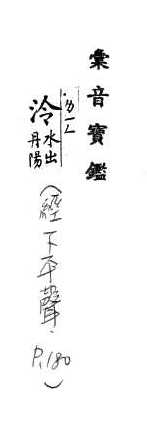 彙音寶鑑
泠 水出丹陽
(經下平聲. P.180)